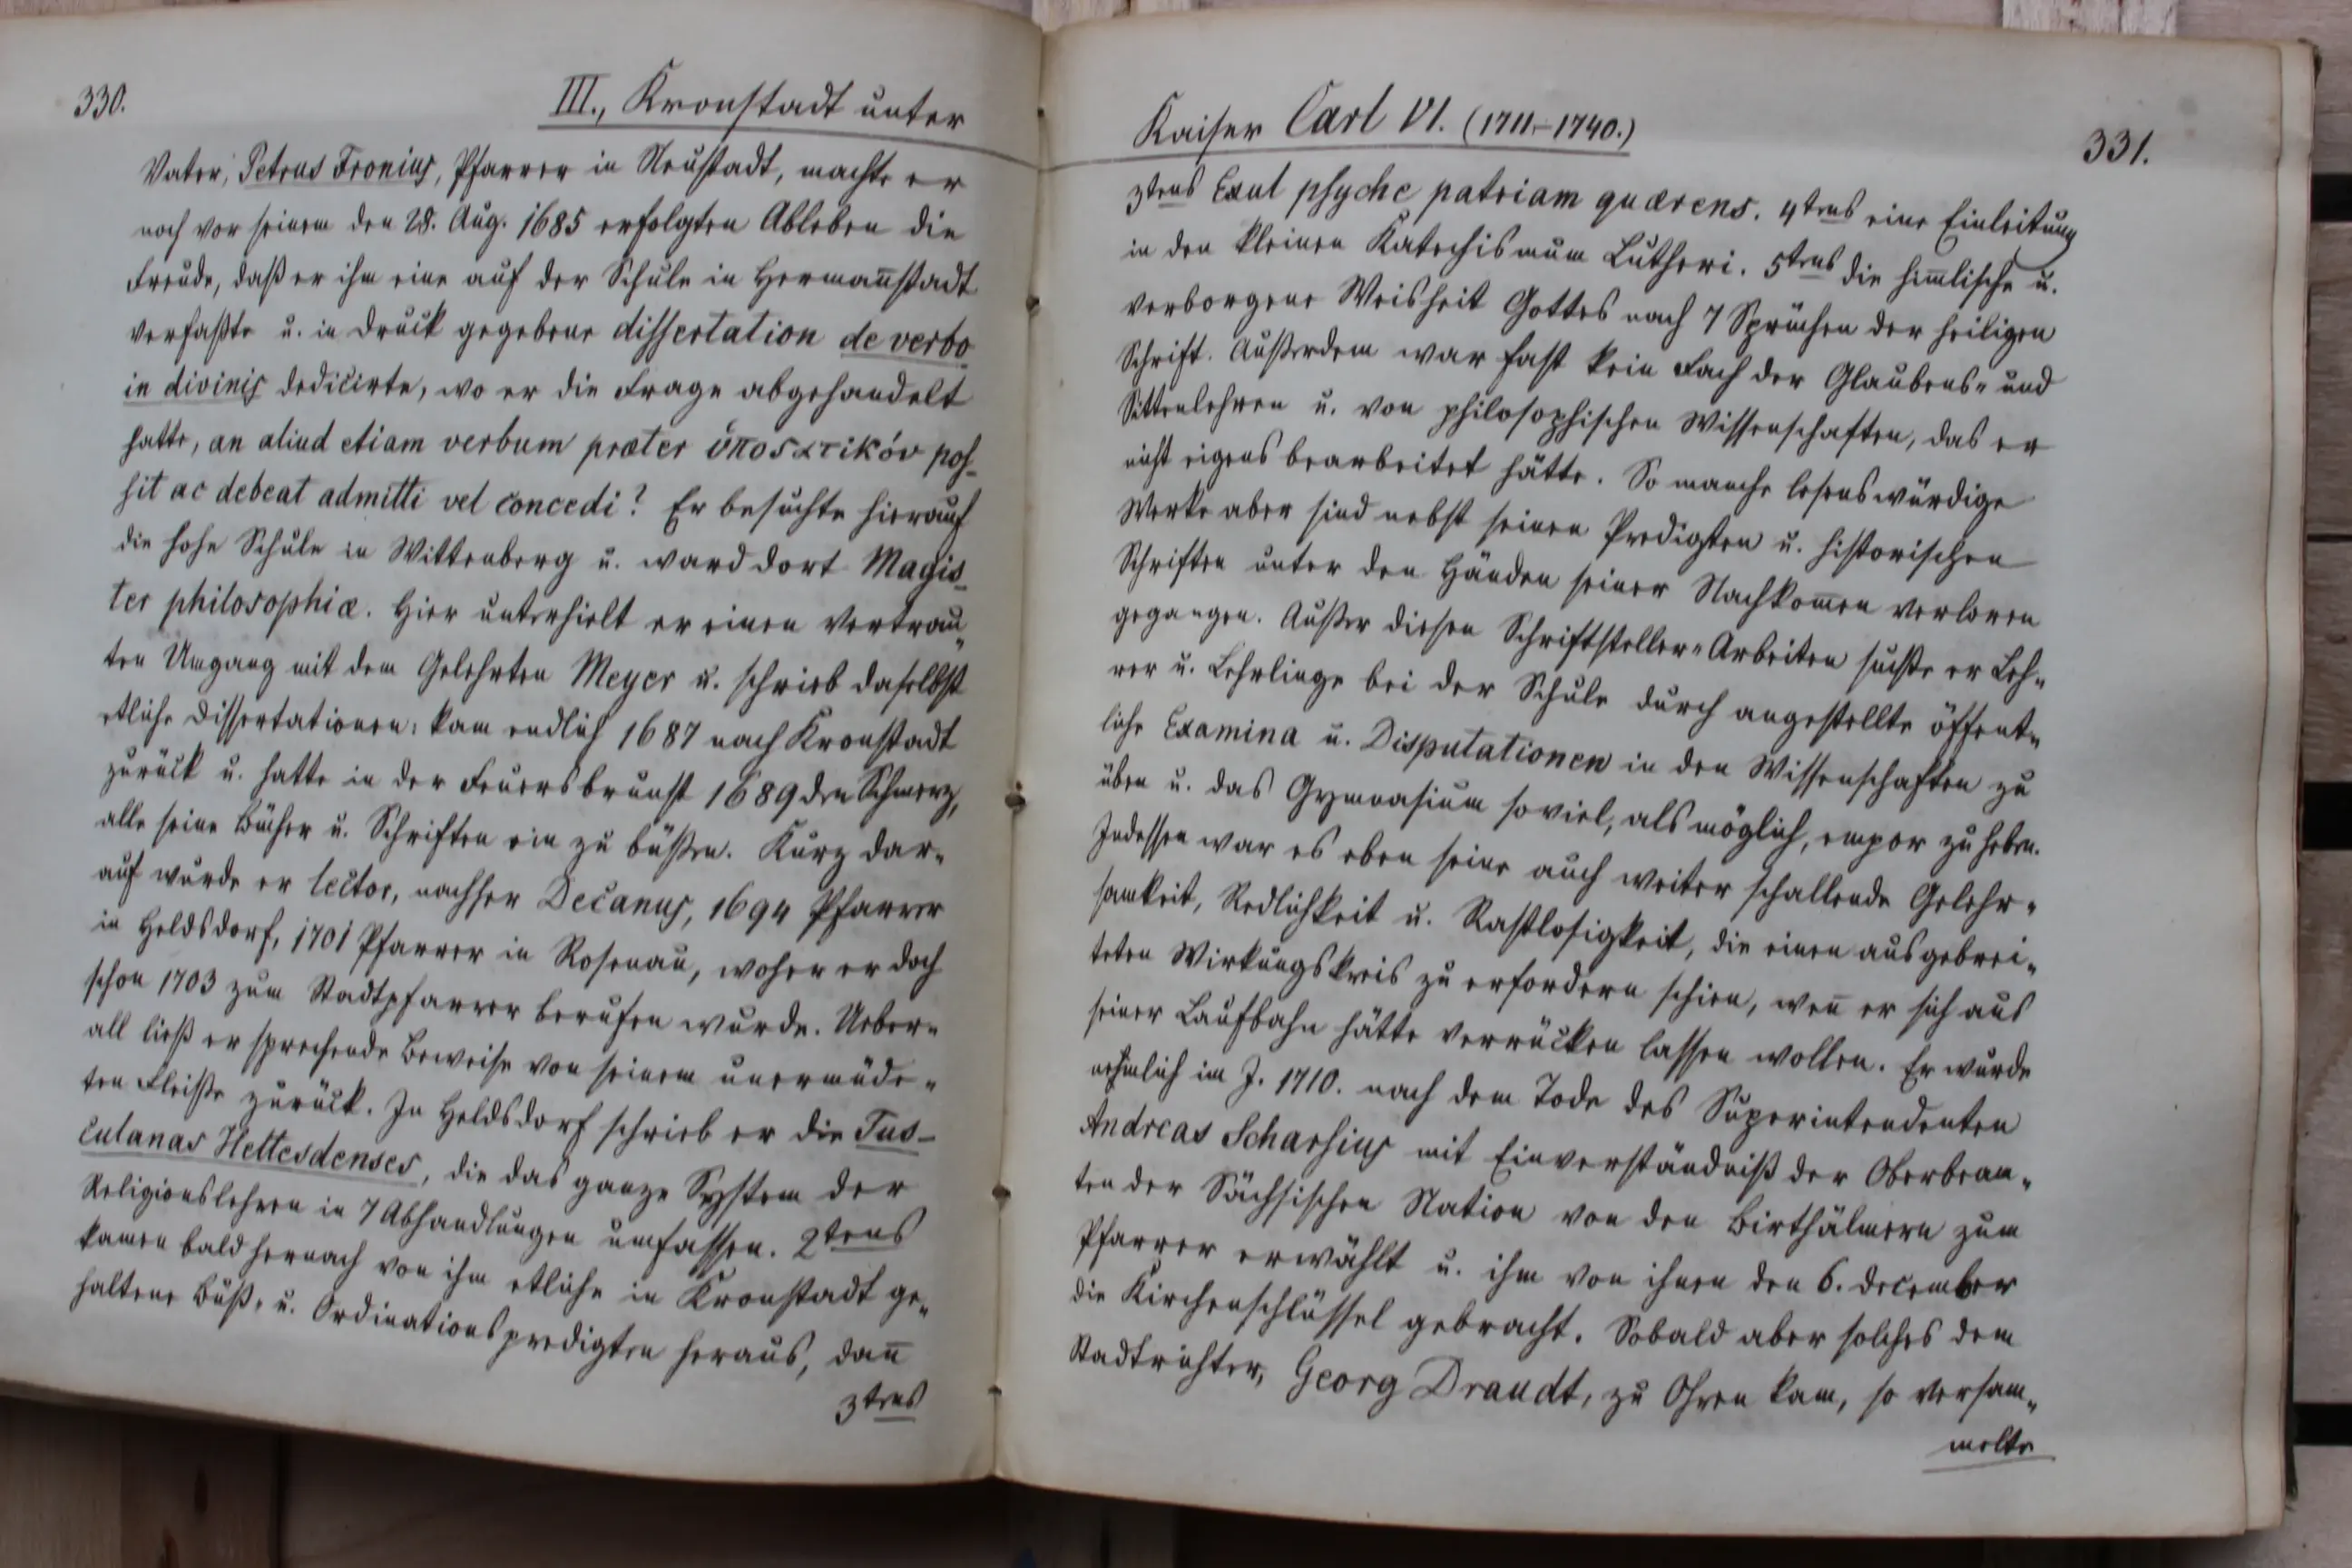 330.
III., Kronstadt unter
Vater, Petrus Fronius, Pfarrer in Neustadt, machte er
noch vor seinem den 28. Aug. 1685 erfolgten Ableben die
Freude, daß er ihm eine auf der Schule in Herman̄stadt
verfaßte u. in Druck gegebene dissertation de verbo
in divinis dedicirte, wo er die Frage abgehandelt
hatte, an aliud etiam verbum præter ὑποστατικόν pos-
sit ac debeat admitti vel concedi? Er besuchte hierauf
die hohe Schule in Wittenberg u. ward dort Magis-
ter philosophiæ. Hier unterhielt er einen vertrau-
ten Umgang mit dem Gelehrten Meyer u. schrieb daselbst
etliche Dissertationen: kam endlich 1687 nach Kronstadt
zurück u. hatte in der Feuersbrunst 1689 den Schmerz,
alle seine Bücher u. Schriften ein zu büßen. Kurz dar-
auf wurde er lector, nachher Decanus, 1694 Pfarrer
in Heldsdorf, 1701 Pfarrer in Rosenau, woher er doch
schon 1703 zum Stadtpfarrer berufen wurde. Ueber-
all ließ er sprechende Beweise von seinem unermüde-
ten Fleiße zurück. In Heldsdorf schrieb er die Tus-
culanas Heltesdenses, die das ganze System der
Religionslehren in 7 Abhandlungen umfassen. 2tens
kamen bald hernach von ihm etliche in Kronstadt ge-
haltene Buß- u. Ordinationspredigten heraus, dan̄
3tens
Kaiser Carl VI. (1711-1740.)
331.
3tens Exul psyche patriam quærens. 4tens eine Einleitung
in den kleinen Katechismum Lutheri. 5tens die him̄lische u.
verborgene Weisheit Gottes nach 7 Sprüchen der heiligen
Schrift. Außerdem war fast kein Fach der Glaubens- und
Sittenlehren u. von philosophischen Wissenschaften, das er
nicht eigens bearbeitet hätte. So manche lesenswürdige
Werke aber sind nebst seinen Predigten u. historischen
Schriften unter den Händen seiner Nachkom̄en verloren
gegangen. Außer diesen Schriftsteller-Arbeiten suchte er Leh-
rer u. Lehrlinge bei der Schule durch angestellte öffent-
liche Examina u. Disputationen in den Wissenschaften zu
üben u. das Gymnasium soviel, als möglich, empor zu heben.
Indessen war es eben seine auch weiter schallende Gelehr-
samkeit, Redlichkeit u. Rastlosigkeit, die einen ausgebrei-
teten Wirkungskreis zu erfordern schien, wen̄ er sich aus
seiner Laufbahn hätte verrücken lassen wollen. Er wurde
nehmlich im J. 1710. nach dem Tode des Superintendenten
Andreas Scharsius mit Einverständniß der Oberbeam-
ten der Sächsischen Nation von den Birthälmern zum
Pfarrer erwählt u. ihm von ihnen den 6. December
die Kirchenschlüssel gebracht. Sobald aber solches dem
Stadtrichter, Georg Draudt, zu Ohren kam, so versam-
melte